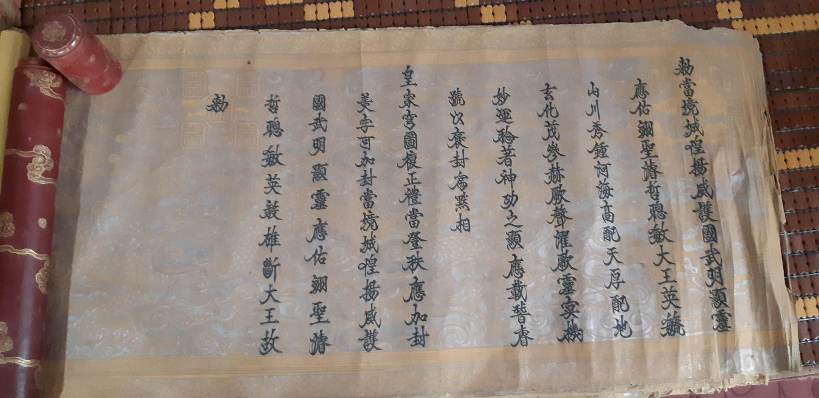 勅當境城隍揚威護國武明顯靈
應佑翊聖濬哲聰敏大王英毓
山川秀鍾河海高配天厚配地
玄化茂參赫厥聲濯厥靈冥機
妙運著神功之顯應載睿
號以褒封為黙相
皇家穹圖復正禮當登秩應加封
美字可加封當境城隍揚威護
國武明顯靈應佑翊聖濬
哲聰敏英毅雄斷大王故
勅